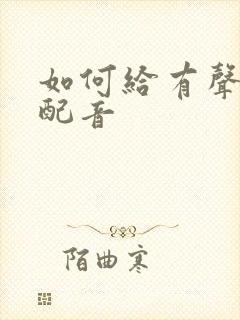 如何給有聲
配音
陌曲寒